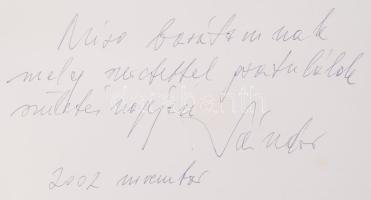 Miso barátomnak
mely szeretettel gratulálok
születés napján Sándor
2002 november